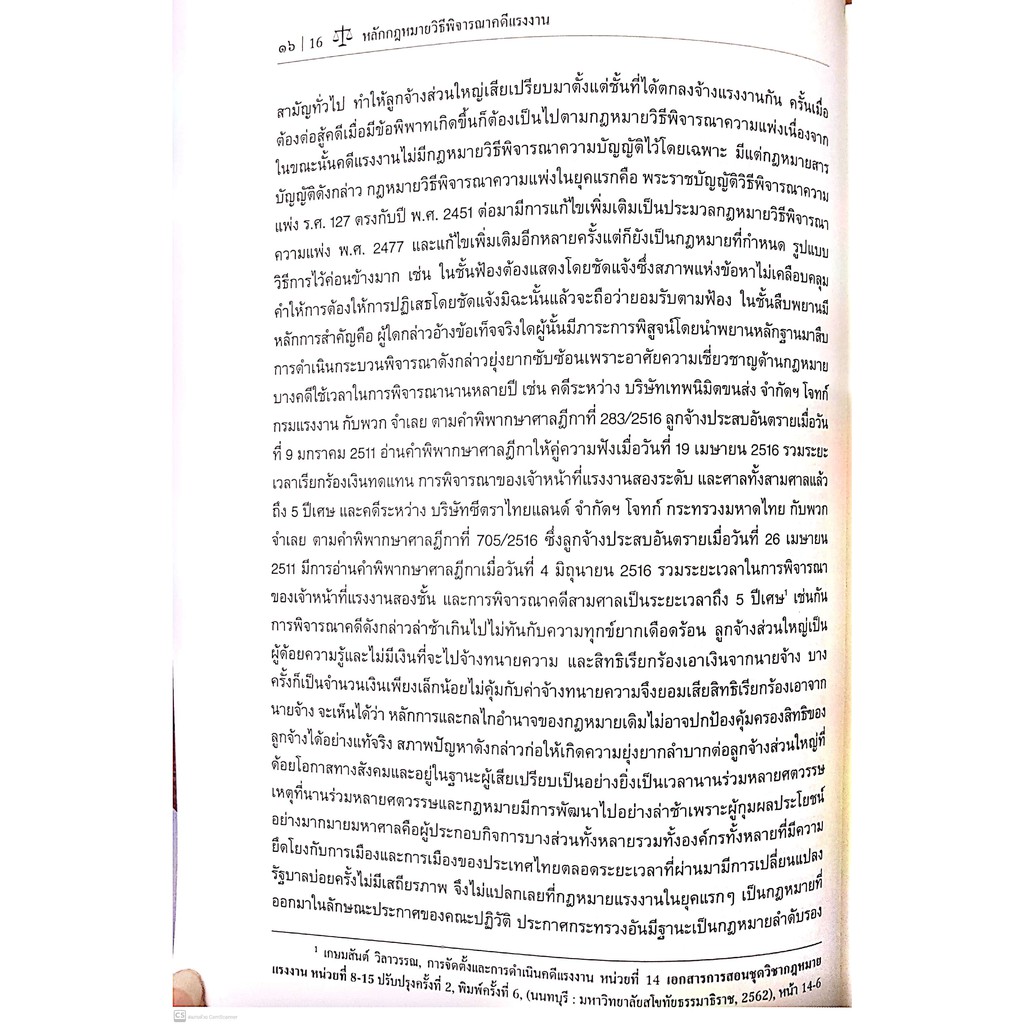 ๑๖ | 16 หลักกฎหมายวิธีพิจารณาคดีแรงงาน
สามัญทั่วไป ทำให้ลูกจ้างส่วนใหญ่เสียเปรียบมาตั้งแต่ชั้นที่ได้ตกลงจ้างแรงงานกัน ครั้นเมื่อ
ต้องต่อสู้คดีเมื่อมีข้อพิพาทเกิดขึ้นก็ต้องเป็นไปตามกฎหมายวิธีพิจารณาความแพ่งเนื่องจาก
ในขณะนั้นคดีแรงงานไม่มีกฎหมายวิธีพิจารณาความบัญญัติไว้โดยเฉพาะ มีแต่กฎหมายสาร
บัญญัติดังกล่าว กฎหมายวิธีพิจารณาความแพ่งในยุคแรกคือ พระราชบัญญัติวิธีพิจารณาความ
แพ่ง ร.ศ. 127 ตรงกับปี พ.ศ. 2451 ต่อมามีการแก้ไขเพิ่มเติมเป็นประมวลกฎหมายวิธีพิจารณา
ความแพ่ง พ.ศ. 2477 และแก้ไขเพิ่มเติมอีกหลายครั้งแต่ก็ยังเป็นกฎหมายที่กำหนด รูปแบบ
วิธีการไว้ค่อนข้างมาก เช่น ในชั้นฟ้องต้องแสดงโดยชัดแจ้งซึ่งสภาพแห่งข้อหาไม่เคลือบคลุม
คำให้การต้องให้การปฏิเสธโดยชัดแจ้งมิฉะนั้นแล้วจะถือว่ายอมรับตามฟ้อง ในชั้นสืบพยานมี
หลักการสำคัญคือ ผู้ใดกล่าวอ้างข้อเท็จจริงใดผู้นั้นมีภาระการพิสูจน์โดยนำพยานหลักฐานมาสืบ
การดำเนินกระบวนพิจารณาดังกล่าวยุ่งยากซับซ้อนเพราะอาศัยความเชี่ยวชาญด้านกฎหมาย
บางคดีใช้เวลาในการพิจารณานานหลายปี เช่น คดีระหว่าง บริษัทเทพนิมิตขนส่ง จำกัดฯ โจทก์
กรมแรงงาน กับพวก จำเลย ตามคำพิพากษาศาลฎีกาที่ 283/2516 ลูกจ้างประสบอันตรายเมื่อวัน
ที่ 9 มกราคม 2511 อ่านคำพิพากษาศาลฎีกาให้คู่ความฟังเมื่อวันที่ 19 เมษายน 2516 รวมระยะ
เวลาเรียกร้องเงินทดแทน การพิจารณาของเจ้าหน้าที่แรงงานสองระดับ และศาลทั้งสามศาลแล้ว
ถึง 5 ปีเศษ และคดีระหว่าง บริษัทซีตราไทยแลนด์ จำกัดฯ โจทก์ กระทรวงมหาดไทย กับพวก
จำเลย ตามคำพิพากษาศาลฎีกาที่ 705/2516 ซึ่งลูกจ้างประสบอันตรายเมื่อวันที่ 26 เมษายน
2511 มีการอ่านคำพิพากษาศาลฎีกาเมื่อวันที่ 4 มิถุนายน 2516 รวมระยะเวลาในการพิจารณา
ของเจ้าหน้าที่แรงงานสองชั้น และการพิจารณาคดีสามศาลเป็นระยะเวลาถึง 5 ปีเศษ¹ เช่นกัน
การพิจารณาคดีดังกล่าวล่าช้าเกินไปไม่ทันกับความทุกข์ยากเดือดร้อน ลูกจ้างส่วนใหญ่เป็น
ผู้ด้อยความรู้และไม่มีเงินที่จะไปจ้างทนายความ และสิทธิเรียกร้องเอาเงินจากนายจ้าง บาง
ครั้งก็เป็นจำนวนเงินเพียงเล็กน้อยไม่คุ้มกับค่าจ้างทนายความจึงยอมเสียสิทธิเรียกร้องเอาจาก
นายจ้าง จะเห็นได้ว่า หลักการและกลไกอำนาจของกฎหมายเดิมไม่อาจปกป้องคุ้มครองสิทธิของ
ลูกจ้างได้อย่างแท้จริง สภาพปัญหาดังกล่าวก่อให้เกิดความยุ่งยากลำบากต่อลูกจ้างส่วนใหญ่ที่
ด้อยโอกาสทางสังคมและอยู่ในฐานะผู้เสียเปรียบเป็นอย่างยิ่งเป็นเวลานานร่วมหลายศตวรรษ
เหตุที่นานร่วมหลายศตวรรษและกฎหมายมีการพัฒนาไปอย่างล่าช้าเพราะผู้กุมผลประโยชน์
อย่างมากมายมหาศาลคือผู้ประกอบกิจการบางส่วนทั้งหลายรวมทั้งองค์กรทั้งหลายที่มีความ
ยึดโยงกับการเมืองและการเมืองของประเทศไทยตลอดระยะเวลาที่ผ่านมามีการเปลี่ยนแปลง
รัฐบาลบ่อยครั้งไม่มีเสถียรภาพ จึงไม่แปลกเลยที่กฎหมายแรงงานในยุคแรกๆ เป็นกฎหมายที่
ออกมาในลักษณะประกาศของคณะปฏิวัติ ประกาศกระทรวงอันมีฐานะเป็นกฎหมายลำดับรอง
¹ เกษมสันต์ วิลาวรรณ, การจัดตั้งและการดำเนินคดีแรงงาน หน่วยที่ 14 เอกสารการสอนชุดวิชากฎหมาย
แรงงาน หน่วยที่ 8-15 ปรับปรุงครั้งที่ 2, พิมพ์ครั้งที่ 6, (นนทบุรี : มหาวิทยาลัยสุโขทัยธรรมาธิราช, 2562), หน้า 14-6
CS สแกนด้วย CamScanner